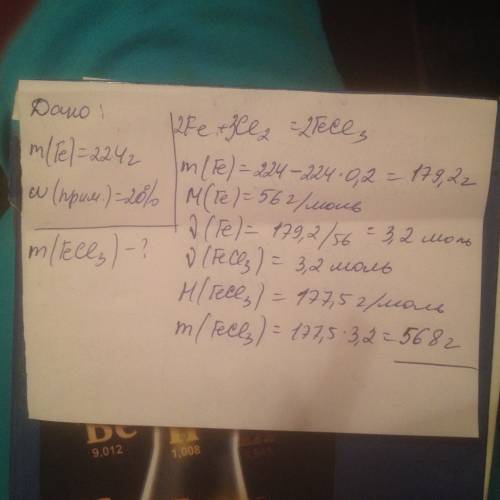 Дано:
m(Fe)=224г
ω(прим.)=20%
m(FeCl₃)-?
2Fe+3Cl₂ =2FeCl₃
m(Fe)=224-224·0,2=179,2г
M(Fe)=56г/моль
ν(Fe)=179,2/56=3,2 моль
ν(FeCl₃)=3,2 моль
M(FeCl₃)=177,5г/моль
m(FeCl₃)=177,5·3,2=568г
9,012
1,008